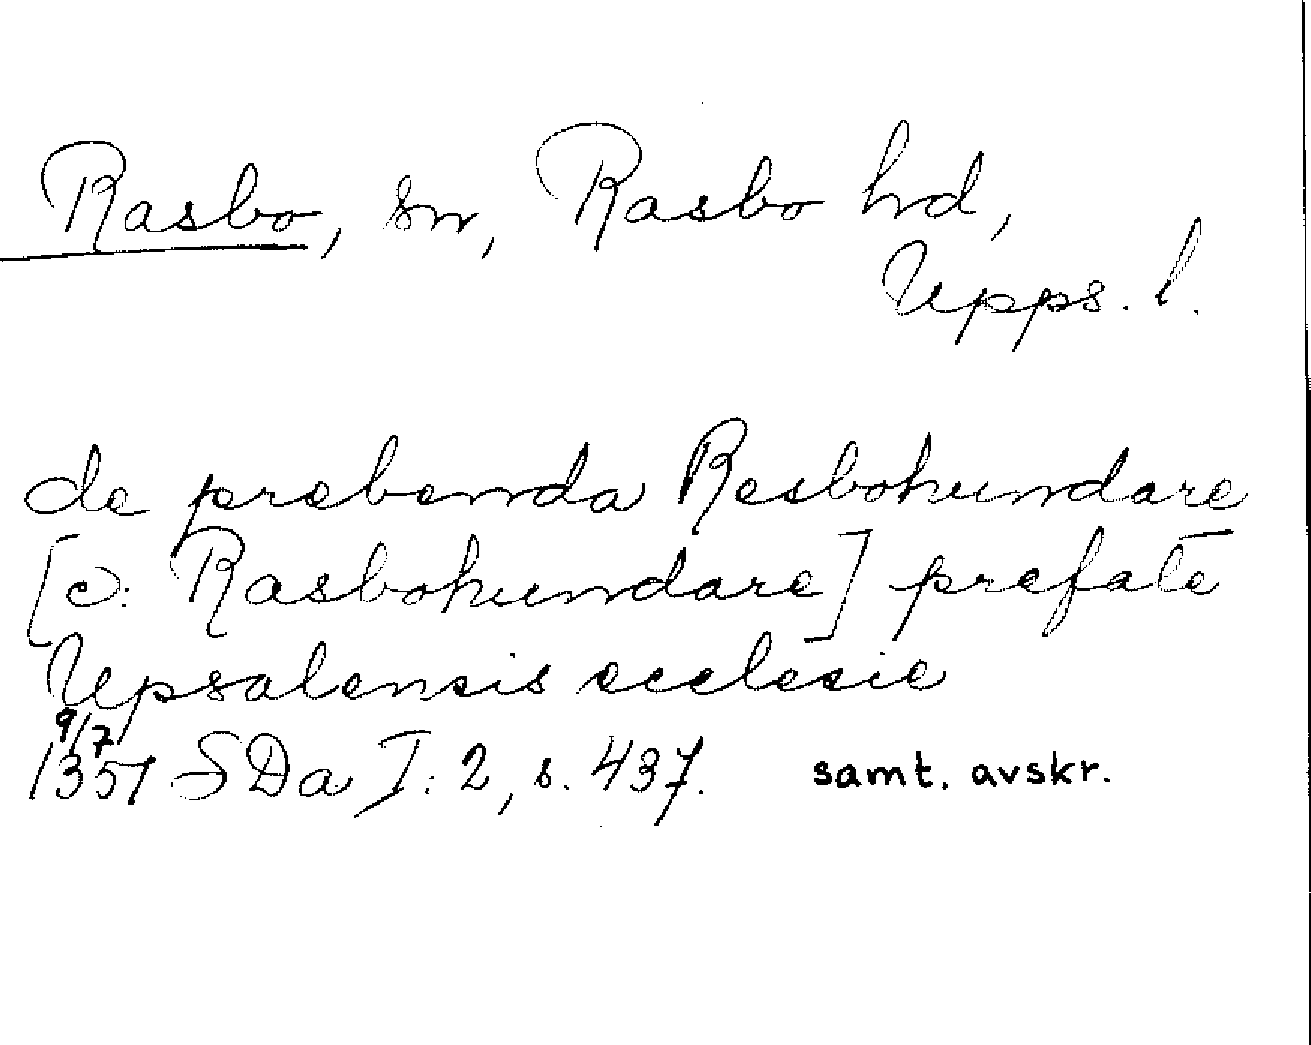 Rasbo, sn, Rasbo hd,
Upps. l.
de prebenda Resbohundare
[ɔ: Rasbohundare] prefate
Upsalensis ecclesie
9/7
1357 SDa I: 2, s. 437. samt. avskr.